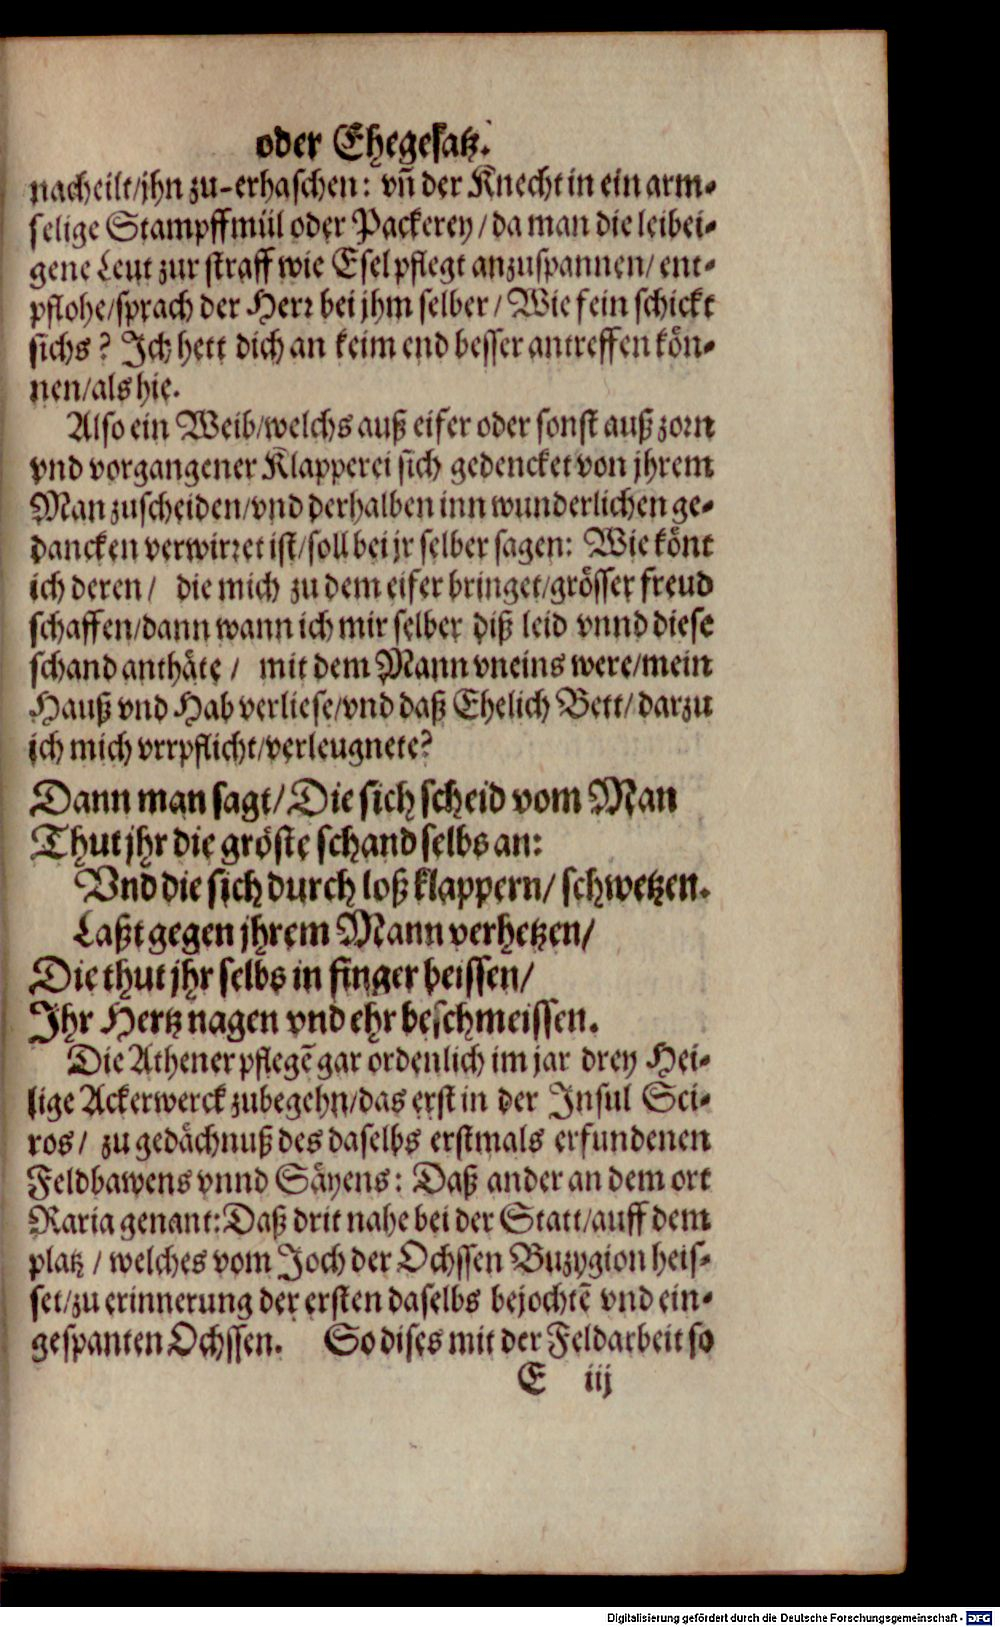 oder Ehegesatz.
nacheilt/jhn zu-erhaschen: vñ der Knecht in ein arm-
selige Stampffmül oder Packerey/da man die leibei-
gene Leut zur straff wie Esel pflegt anzuspannen/ ent-
pflohe/sprach der Herr bei jhm selber/ Wie fein schickt
sichs? Ich hett dich an keim end besser antreffen kön-
nen/als hie.
Also ein Weib/welchs auß eifer oder sonst auß zorn
vnd vorgangener Klapperei sich gedencket von jhrem
Man zuscheiden/vnd derhalben inn wunderlichen ge-
dancken verwirret ist/soll bei jr selber sagen: Wie könt
ich deren/ die mich zu dem eifer bringet/grösser freud
schaffen/dann wann ich mir selber diß leid vnnd diese
schand anthäte/ mit dem Mann vneins were/mein
Hauß vnd Hab verliese/vnd daß Ehelich Bett/darzu
ich mich vrrpflicht/verleugnete?
Dann man sagt/Die sich scheid vom Man
Thut jhr die gröste schand selbs an:
Vnd die sich durch loß klappern/ schwetzen.
Laßt gegen jhrem Mann verhetzen/
Die thut jhr selbs in finger beissen/
Ihr Hertz nagen vnd ehr beschmeissen.
Die Athener pflegẽ gar ordenlich im jar drey Hei-
lige Ackerwerck zubegehn/das erst in der Insul Sci-
ros/ zu gedächnuß des daselbs erstmals erfundenen
Feldbawens vnnd Säyens: Daß ander an dem ort
Raria genant: Daß drit nahe bei der Statt/auff dem
platz/ welches vom Joch der Ochssen Buzygion heis-
set/zu erinnerung der ersten daselbs bejochtẽ vnd ein-
gespanten Ochssen. So dises mit der Feldarbeit so
E iij
Digitalisierung gefördert durch die Deutsche Forschungsgemeinschaft - DFG